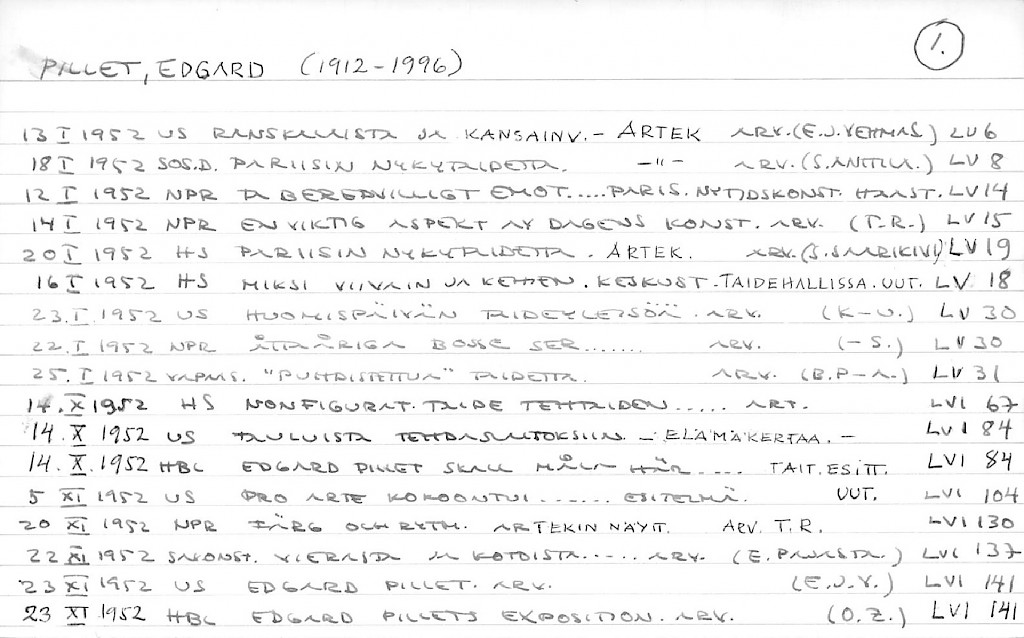 1.
PILLET, EDGARD (1912-1996)
13 I 1952 US RANSKALAISTA JA KANSAINV. - ARTEK ARV. (E.J. VEHMAS) LV 6
18 I 1952 SOS.D. PARIISIN NYKYTAIDETTA. -"- ARV. (S. ANTTILA.) LV 8
12 I 1952 NPR TA BEREDVILLIGT EMOT..... PARIS. NYTIDSKONST. HAAST. LV 14
14 I 1952 NPR EN VIKTIG ASPEKT AV DAGENS KONST. ARV. (T.R.) LV 15
20 I 1952 HS PARIISIN NYKYTAIDETTA. ARTEK. ARV. (S. SAARIKIVI) LV 19
16 I 1952 HS MIKSI VIIVAIN JA KEHEN. KESKUST. TAIDEHALLISSA. UUT. LV 18
23. I. 1952 US HUOMISPÄIVÄN TAIDEYLEISÖÄ. ARV. (K-U.) LV 30
22. I 1952 NPR ÅTTAÅRIGA BOSSE SER....... ARV. (-S.) LV 30
25. I 1952 VAPAAS. "PUHDISTETTUA" TAIDETTA. ARV. (B.P-A.) LV 31
14. X 1952 HS NONFIGURAT. TAIDE TEHTAIDEN..... ART. LVI 67
14. X 1952 US TAULUISTA TEHDASSALITOKSIIN. - ELÄMÄKERTAA. - LVI 84
14. X. 1952 HBL EDGARD PILLET SKALL MÅLA HÄR.... TAIT. ESITT. LVI 84
5 XI 1952 US PRO ARTE KOKOONTUI....... ESITELMÄ. UUT. LVI 104
20 XI 1952 NPR FÄRG OCH RYTM. ARTEKIN NÄYTT. ARV. T.R. LVI 130
22 XI 1952 VIERASTA JA KOTOISTA..... ARV. (E. PAVASTA.) LVI 137
23 XI 1952 US EDGARD PILLET. ARV. (E.J.V.) LVI 141
23 XI 1952 HBL EDGARD PILLETS EXPOSITION. ARV. (O.Z.) LVI 141